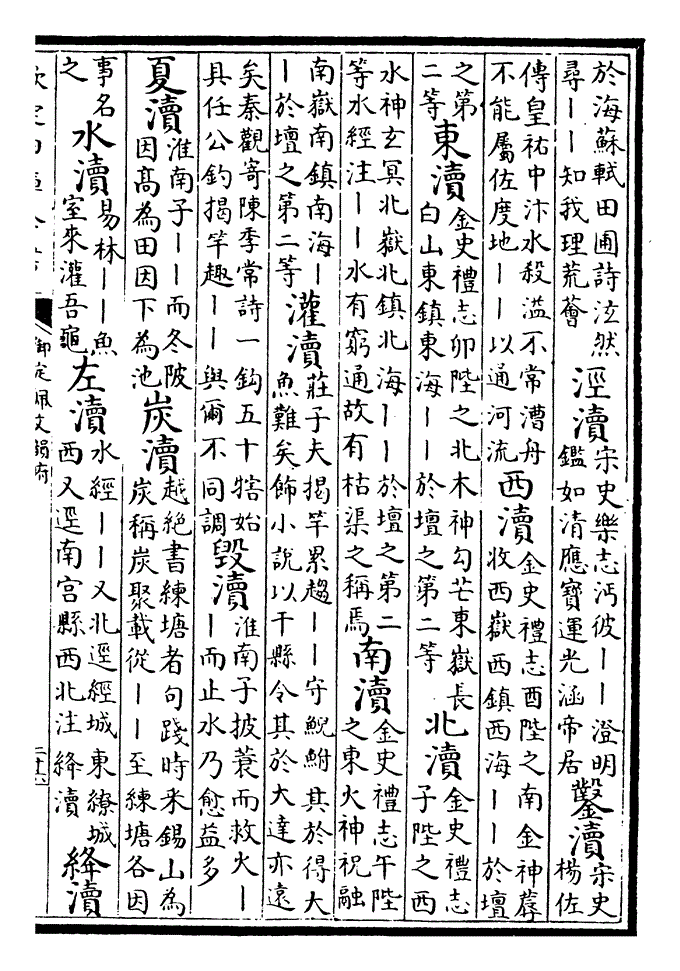 於海蘇軾田圃詩泫然
尋――知我理荒薈
涇瀆
宋史樂志沔彼――澄明
鑑如清應寶運光涵帝居
鑿瀆
宋史
楊佐
傳皇祐中汴水殺溢不常漕舟
不能屬佐度地――以通河流
西瀆
金史禮志酉陛之南金神蓐
收西嶽西鎮西海――於壇
之第
二等
東瀆
金史禮志卯陛之北木神勾芒東嶽長
白山東鎮東海――於壇之第二等
北瀆
金史禮志
子陛之西
水神玄冥北嶽北鎮北海――於壇之第二
等水經注――水有窮通故有枯渠之稱焉
南瀆
金史禮志午陛
之東火神祝融
南嶽南鎮南海―
―於壇之第二等
灌瀆
莊子夫揭竿累趨――守鯢鮒其於得大
魚難矣飾小說以干縣令其於大達亦遠
矣秦觀寄陳季常詩一鈎五十犗始
具任公釣揭竿趣――與爾不同調
毀瀆
淮南子披蓑而救火―
―而止水乃愈益多
夏瀆
淮南子――而冬陂
因髙為田因下為池
炭瀆
越絶書練塘者句踐時采錫山為
炭稱炭聚載從――至練塘各因
事名
之
水瀆
易林――魚
室來灌吾龜
左瀆
水經――又北逕經城東繚城
西又逕南宫縣西北注絳瀆
絳瀆
御定佩文韻府